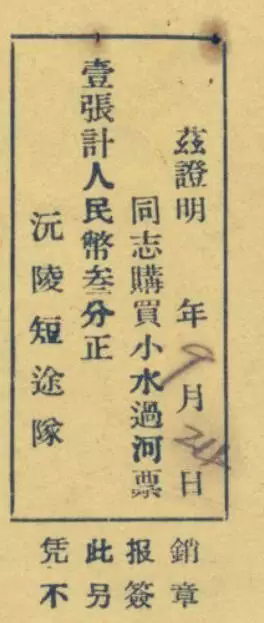 茲證明 年9月24日
同志購買小水過河票
壹張計人民幣叁分正
沅陵短途隊
凭此报銷
不另簽章